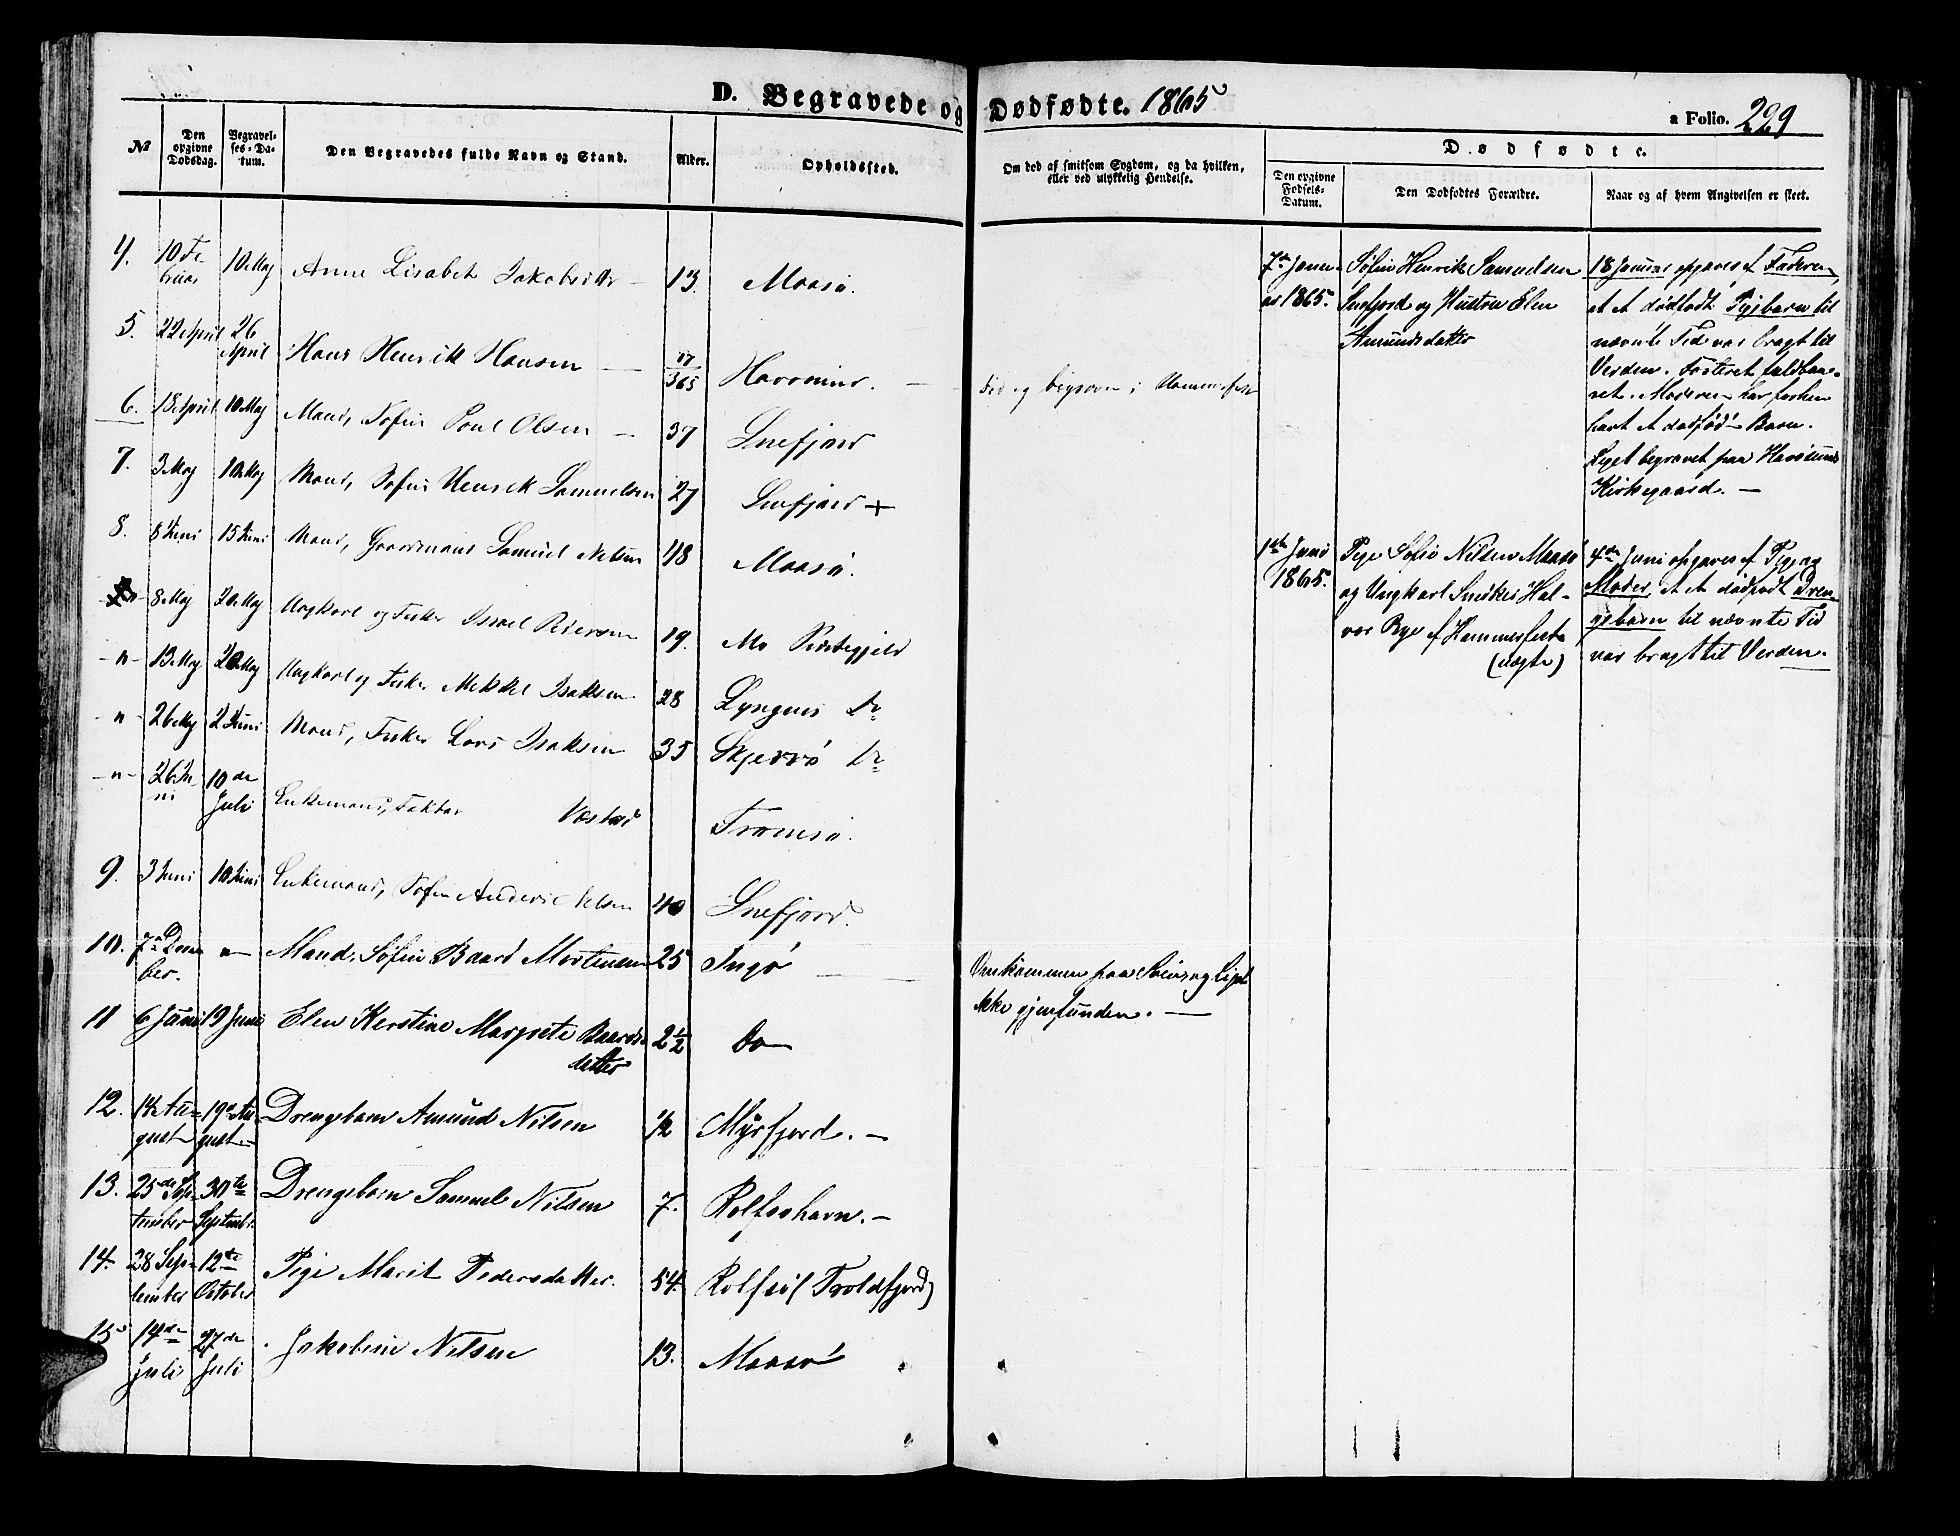 D. Begravede og Dødfødte. 1865
a Folio. 229
No
Den opgivne Dødsdag.
Begravelses-Datum.
Den Begravedes fulde Navn og Stand.
Alder.
Opholdssted.
Om død af smitsom Sygdom, og da hvilken, eller ved ulykkelig Hendelse.
Dødfødte.
Den opgivne Fødsels-Datum.
Den Dødfødtes Forældre.
Naar og af hvem Angivelsen er skeet.
4. 10 Februar 10 Maj Anne Lisabet Jakobsdtr 13. Maasø.
5. 22 April 26 April Hans Henrik Hansen 17/365 Havøsund. Død og begraven i Hammerfest
6. 18 April 10 Maj Mand, Søfin Poul Olsen 37 Snefjord
7. 3 Maj 10 Maj Mand, Søfin Henrik Samuelsen 27 Snefjord +
8. 8 Juni 15 Juni Mand, Gaardmand Samuel Nilsen 48 Maasø.
-"- 8 Maj 20 Maj Ungkarl og Fisker Israel Pedersen 19. Mo Præstegjeld
-"- 13 Maj 20 Maj Ungkarl og Fisker Mikkel Isaksen 28 Lyngens Do
-"- 26 Maj 2 Juni Mand, Fisker Lars Isaksen 35 Skjervø Do
-"- 26 Juni 10de Juli Enkemand, Faktor Vestad Tromsø.
9. 3 Juni 10 Juni Enkemand, Søfin Anders Nilsen 40 Snefjord.
10. 7de December "- Mand, Søfin Baard Mortensen 25 Ingø Omkommen paa Søen og Liget
ikke gjenfunden. —
11 6 Juni 19 Juni Elen Kerstine Margrete Baardsdatter 2½ Do
12. 14 August 19de August Drengebarn Amund Nilsen ½ Myrfjord. —
13. 25de September 30te September Drengebarn Samuel Nilsen 7. Rolfsøhavn. —
14. 28 September 12te October Pige Marit Pedersdatter. 54. Rolfsø (Troldfjord)
15 14de Juli 27de Juli Jakobine Nilsen 13. Maasø
7de Januar 1865.
Søfin Henrik Samuelsen
Snefjord og Hustru Elen
Amundsdatter
18 Januar opgaves af Faderen,
at et dødfødt Pigebarn til
nævnte Tid var bragt til
Verden. Fosteret fuldbaaret.
Moderen har forhen
havt et dødfødt Barn.
Liget begravet paa Havøsunds
Kirkegaard. —
1ste Juni 1865.
Pige Sofie Nilsen Maasø
og Ungkarl Snedker Halvor
Bye af Hammerfest
(uægte)
4de Juni opgaves af Pige og
Moder, at et dødfødt Drengebarn
til nævnte Tid
var bragt til Verden.